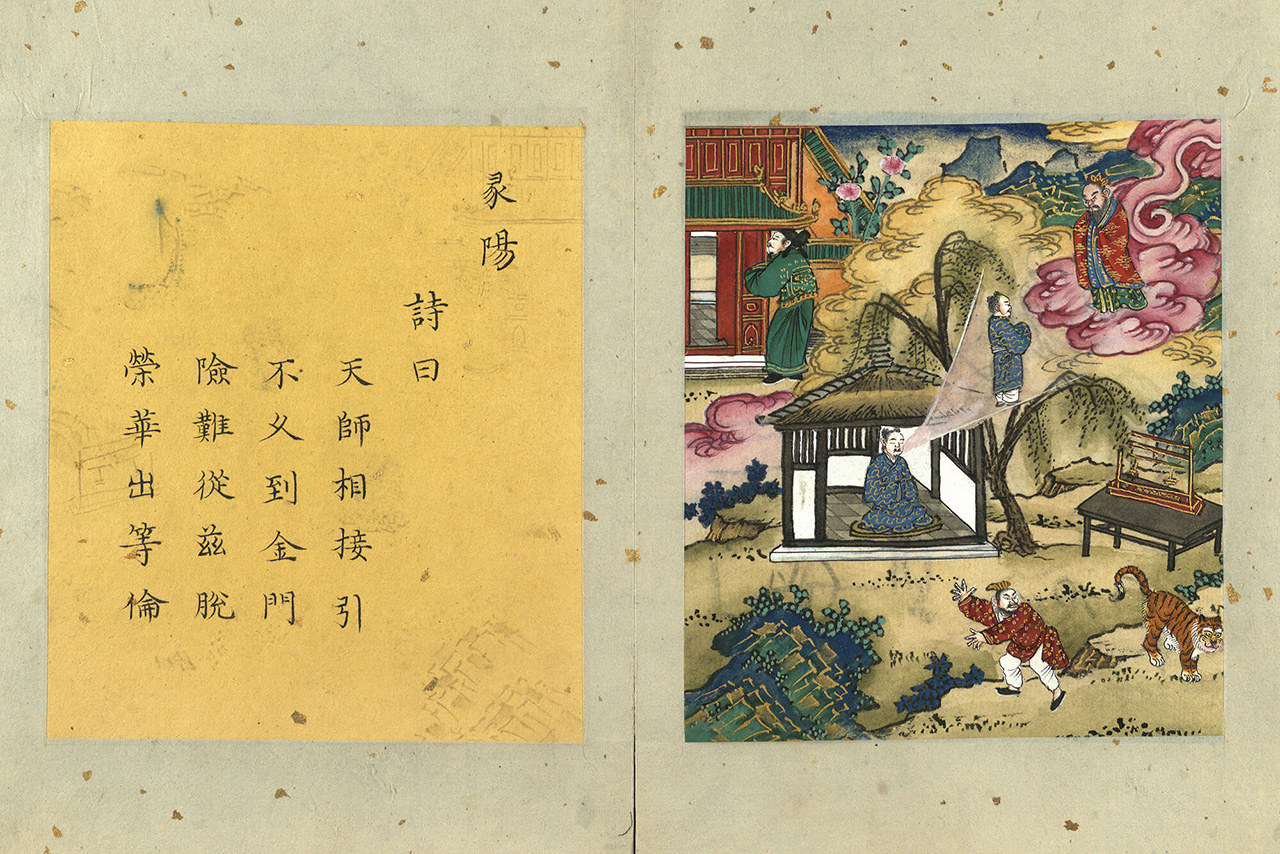 彖陽
詩曰
天師相接引
不久到金門
險難從茲脫
榮華出等倫